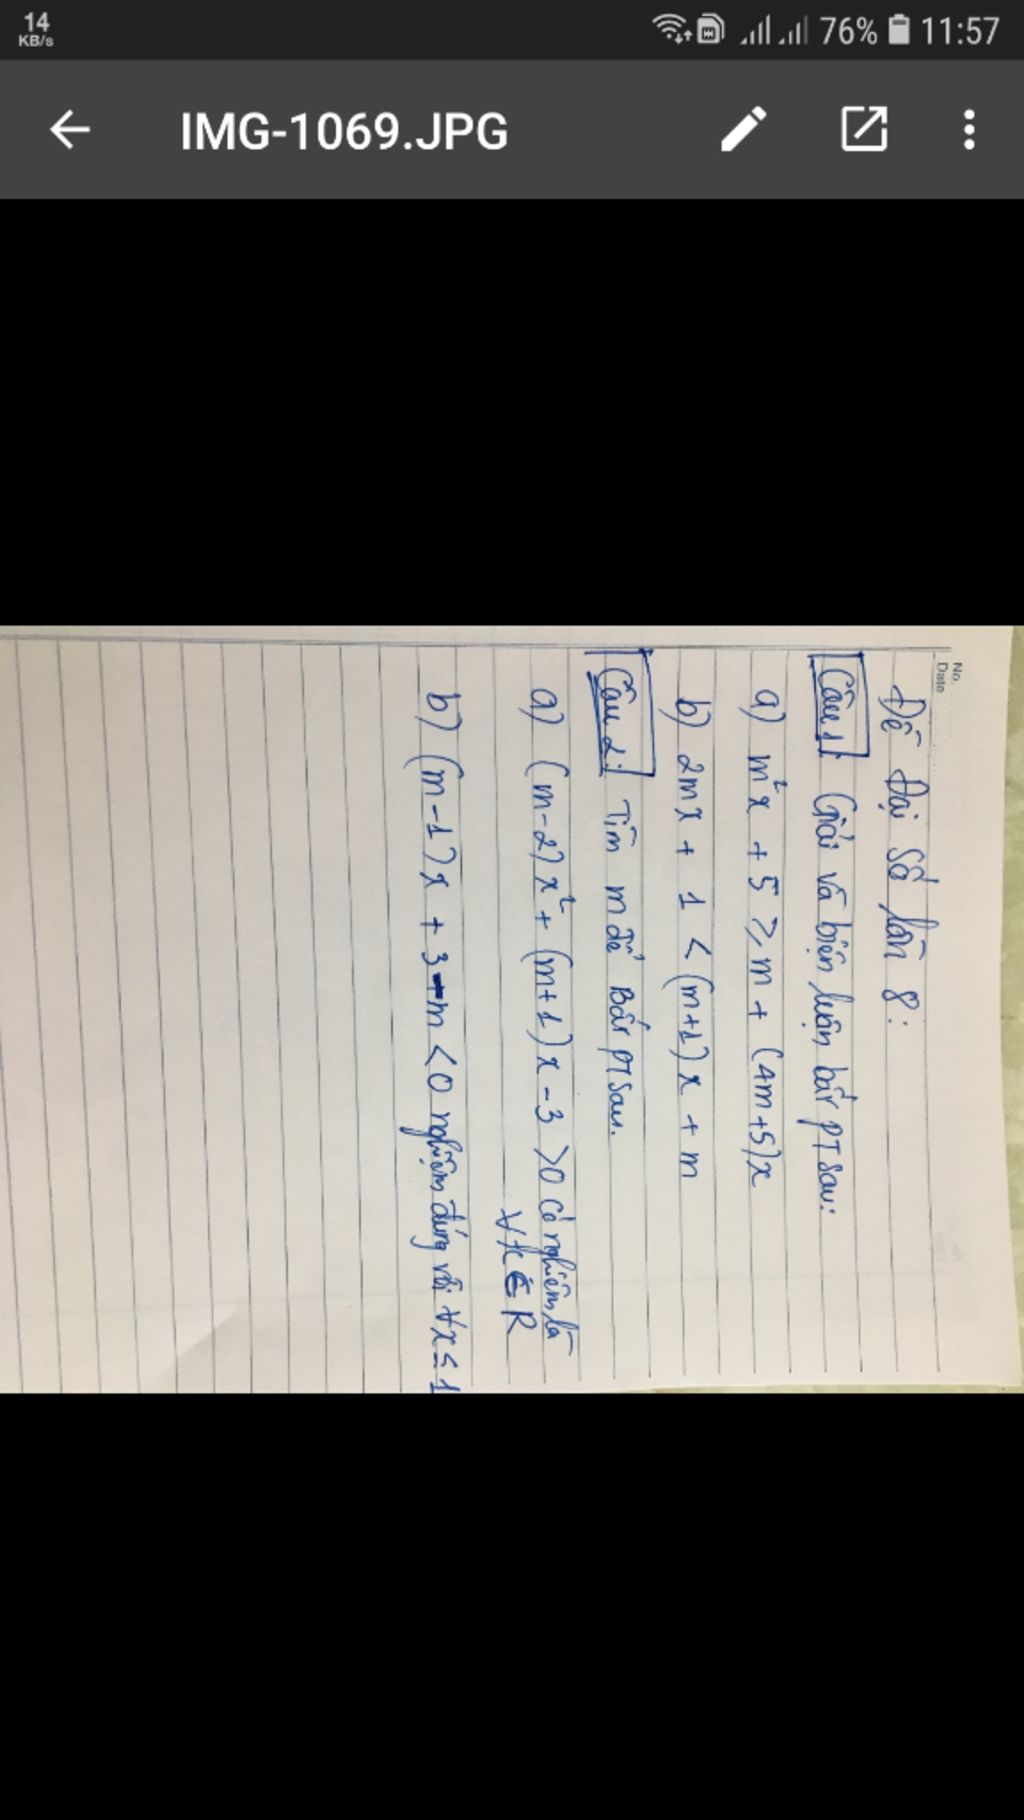 14
KB/s
76%
11:57
IMG-1069.JPG
No.
Date
Đề Đại Số lần 8:
Câu 1: Giải và biện luận bất PT sau:
a) m²x + 5 ≥ m + (4m+5)x
b) 2mx + 1 < (m+1)x + m
Câu 2: Tìm m để Bất PT sau.
a) (m-2)x² + (m+1)x - 3 >0 có nghiệm là
∀x∈R
b) (m-1)x + 3-m <0 nghiệm đúng với ∀x≤1